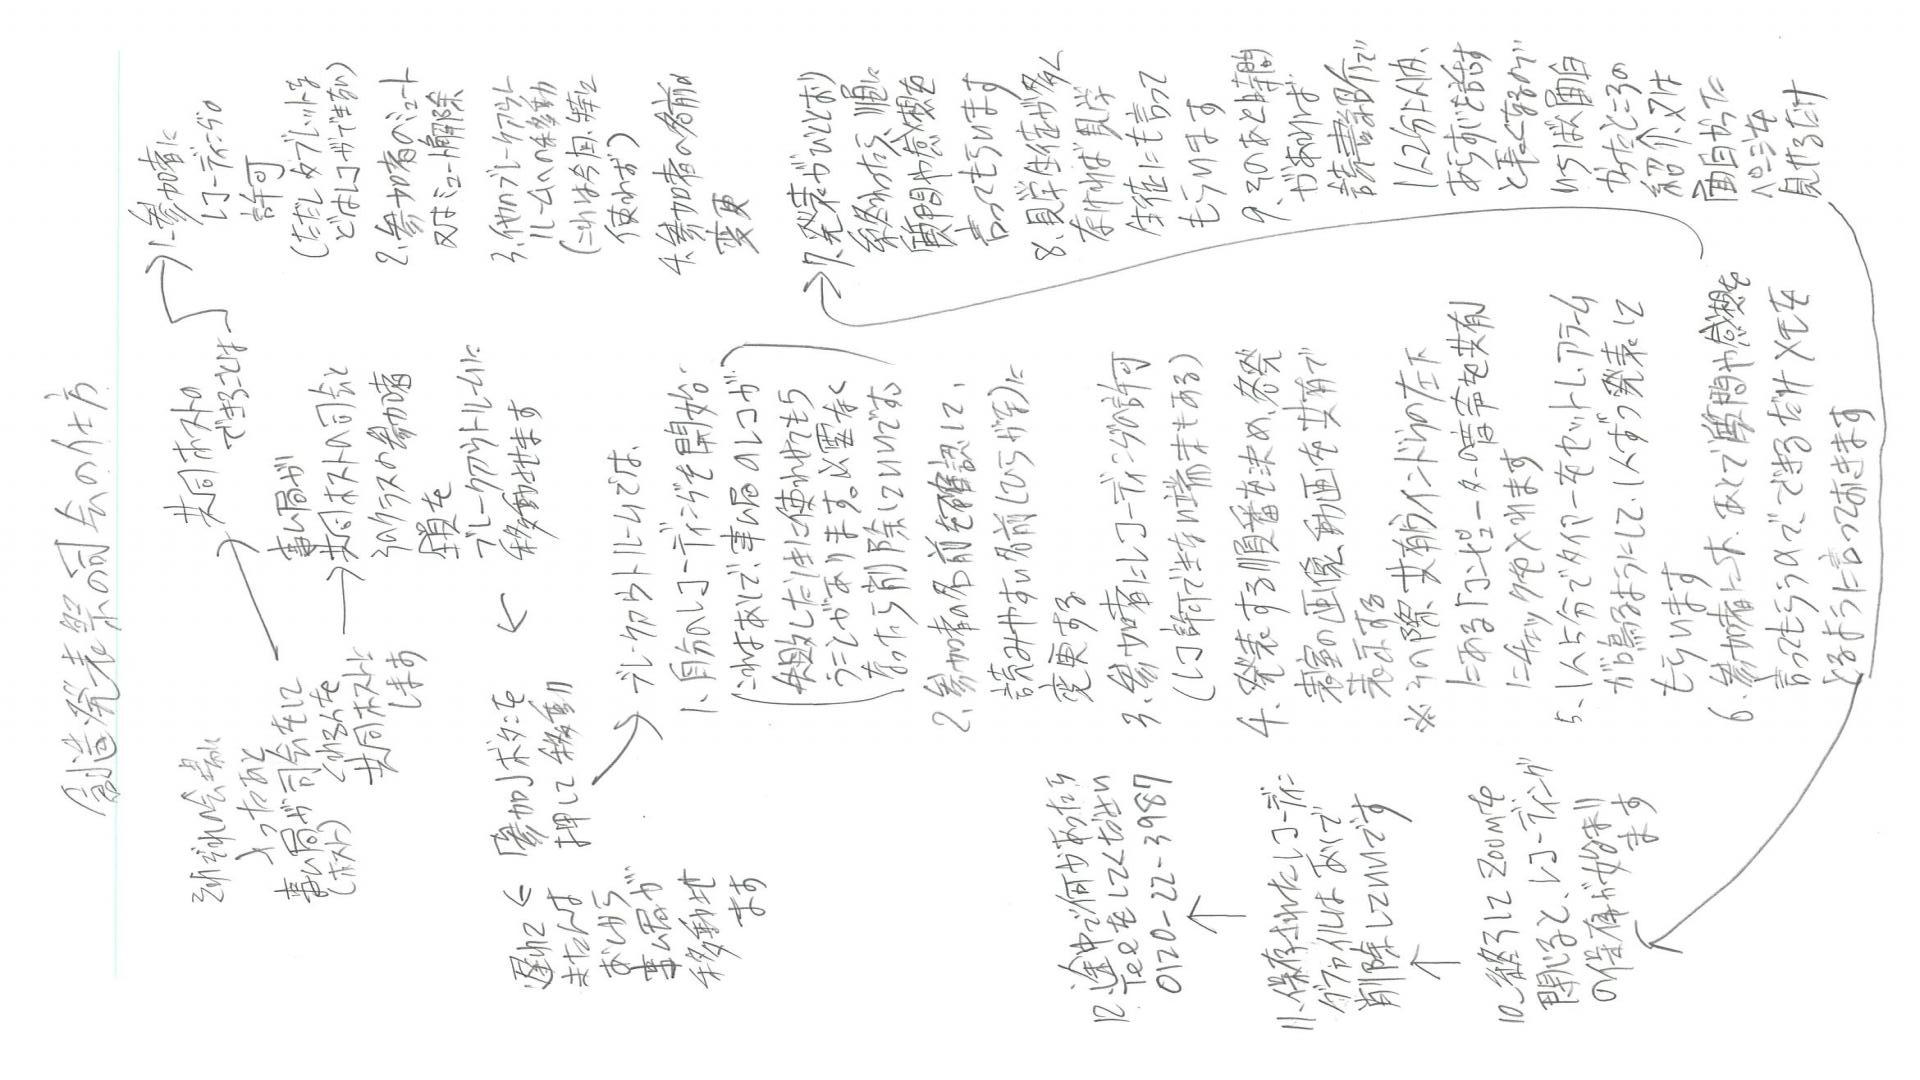 創造発表祭の司会の仕方
それぞれの会場に
入ったあと
事ム局が司会をして
(ホスト) くれる人を
共同ホストに
します
事ム局が
共同ホストの司会と
そのクラスの参加者
全員を
ブレークアウトルームに
移動させます
共同ホストの
できることは
1. 参加者に
レコーディングの
許可
(ただしタブレットな
どはレコができない)
2. 参加者のミュート
又はミュート解除
3. 他のブレークアウト
ルームへの移動
(これは今回、特に
使わず)
4. 参加者の名前の
変更
「参加」ボタンを
押して移動!!
遅れて
きた人は
あとから
事ム局が
移動させ
ます
ブレークアウトルームでは、
1. 自分のレコーディングを開始。
(これはあとで、事ム局のレコが
失敗したときに使わせてもら
うことがあります。必要なく
なったら削除していいです)
2. 参加者の名前を確認して、
読みやすい名前(ひらがな)に
変更する
3. 参加者にレコーディングの許可
(レコ許可できない端末もある)
4. 発表する順番を決め、各発
表室の画像、動画を共有で
表示する
※その際、共有ウィンドウの左下
にある「コンピューターの音声を共有」
にチェックを入れます
5. 1人5分でタイマーをセットし、アラーム
が鳴るようにして、1人ずつ発表して
もらいます
6. 参加者には、あとで質問や感想を
言ってもらうのでできるだけメモを
とるように言っておきます
7. 発表がひととおり
終わったら、順に
質問や感想を
言ってもらいます
8. 見学生徒が多く
なければ見学
生徒にも言って
もらいます
9. そのあと時間
があれば、
読書紹介で
1人2分以内、
あらすじを話す
と長くなるので
いちばん面白
かったところの
紹介、又は
面白かった
ページを
見せるだけ
10. 終了してZoomを
閉じると、レコーディング
の保存が始まり
ます
11. 保存されたレコーディン
グファイルはあとで
削除していいです
12. 途中で何かあったら
Telをしてください
0120-22-3987